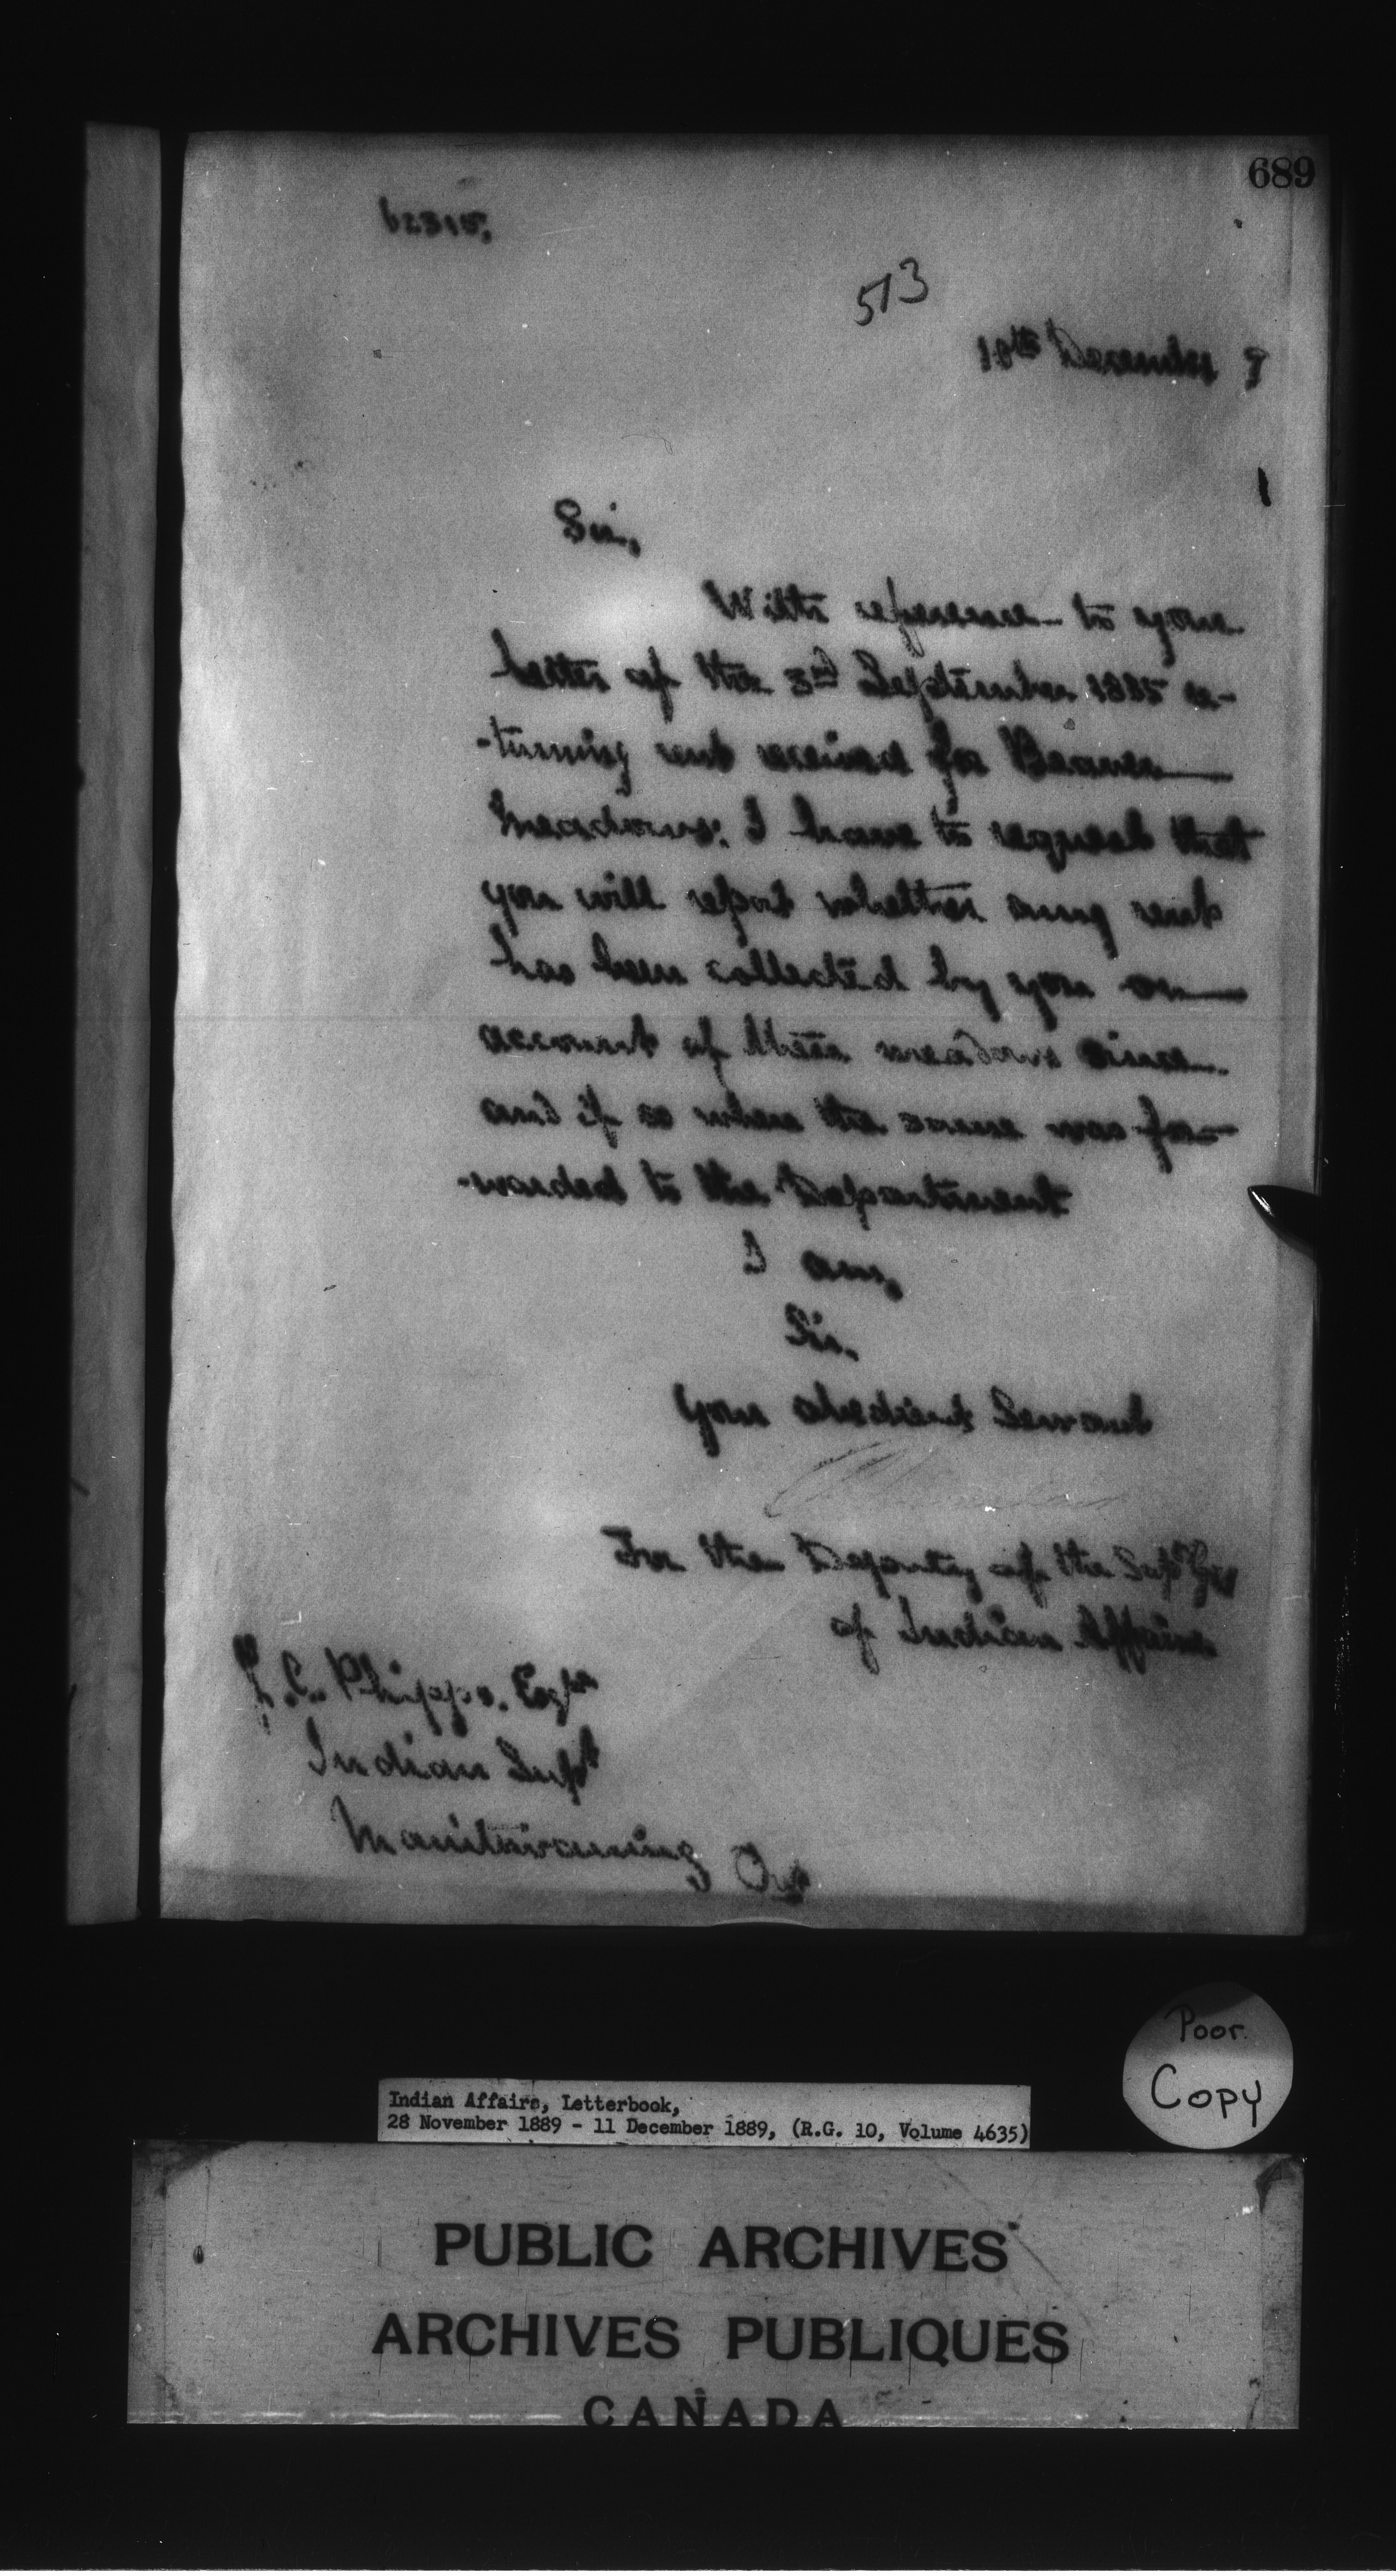 689
62315,
513
10th December 9
Sir,
With reference to your
letter of the 3rd September 1885 re-
-turning rent received for Beaver
Meadows: I have to request that
you will report whether any rent
has been collected by you on
account of these meadows since
and if so when the same was for-
-warded to the Department
I am,
Sir,
Your obedient Servant
For the Deputy of the Supt Genl
of Indian Affairs
J.C. Phipps. Esqre
Indian Supt
Manitowaning Ont
Poor
Copy
Indian Affairs, Letterbook,
28 November 1889 - 11 December 1889, (R.G. 10, Volume 4635)
PUBLIC ARCHIVES
ARCHIVES PUBLIQUES
CANADA